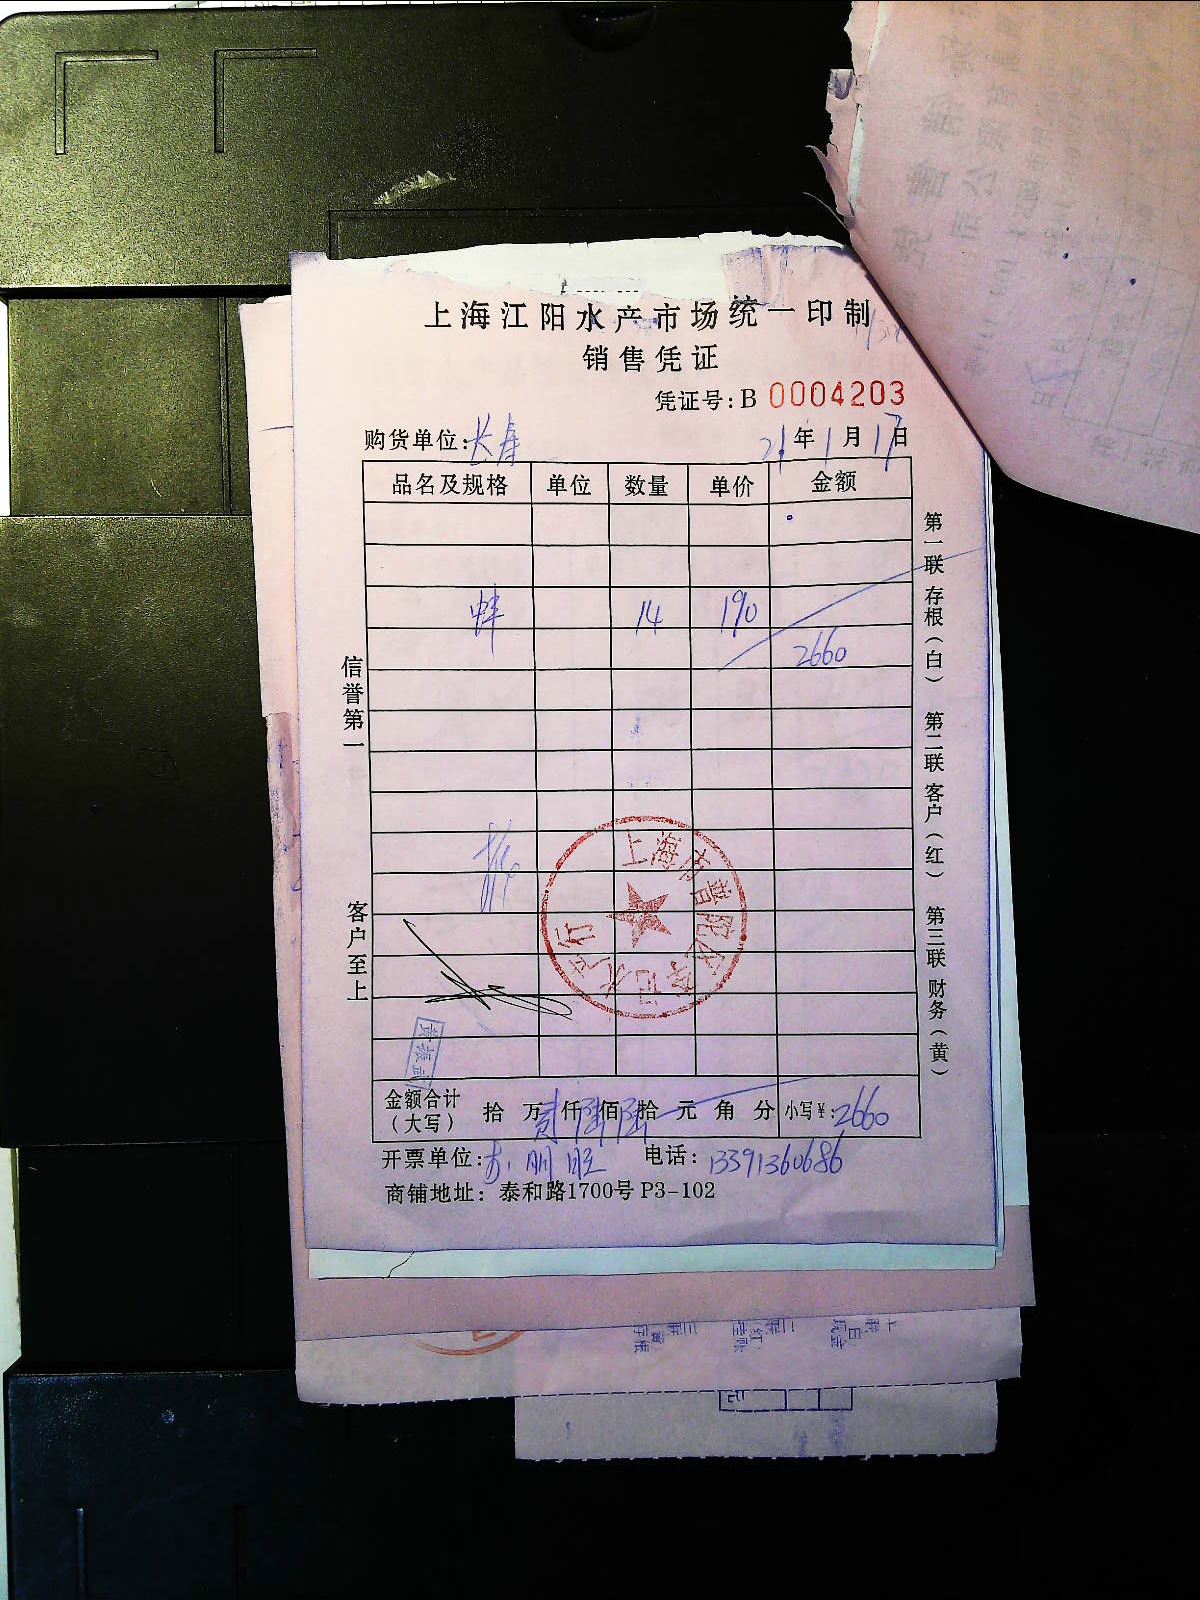 上海江阳水产市场统一印制
销售凭证
凭证号:B 0004203
购货单位:长寿 21年1月17日
品名及规格 单位 数量 单价 金额
蚌 14 190
2660
信誉第一
客户至上
第一联 存根(白) 第二联 客户(红) 第三联 财务(黄)
上海市普陀区 记水产行
金额合计(大写) 拾万贰仟陆佰陆拾元角分 小写¥:2660
开票单位: 电话:13391360686
商铺地址:泰和路1700号 P3-102